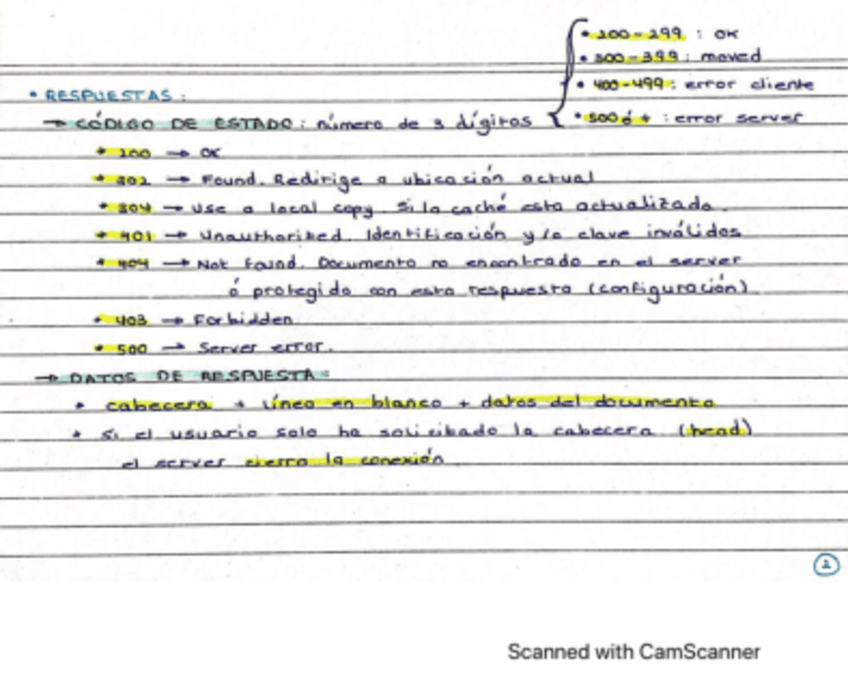 • 200-299 : OK
• 300-399 : moved
• 400-499 : error cliente
• RESPUESTAS :
→ CÓDIGO DE ESTADO : número de 3 dígitos
• 500 ó + : error server
* 200 → OK
* 302 → Found. Redirige a ubicación actual
* 304 → Use a local copy. Si la caché esta actualizada.
* 401 → Unauthorized. Identificación y/o clave inválidos
* 404 → Not Found. Documento no encontrado en el server
ó protegido con esta respuesta (configuración)
* 403 → Forbidden
* 500 → Server error.
→ DATOS DE RESPUESTA :
* cabecera + línea en blanco + datos del documento
* si el usuario solo ha solicitado la cabecera (head)
el server cierra la conexión
2
Scanned with CamScanner